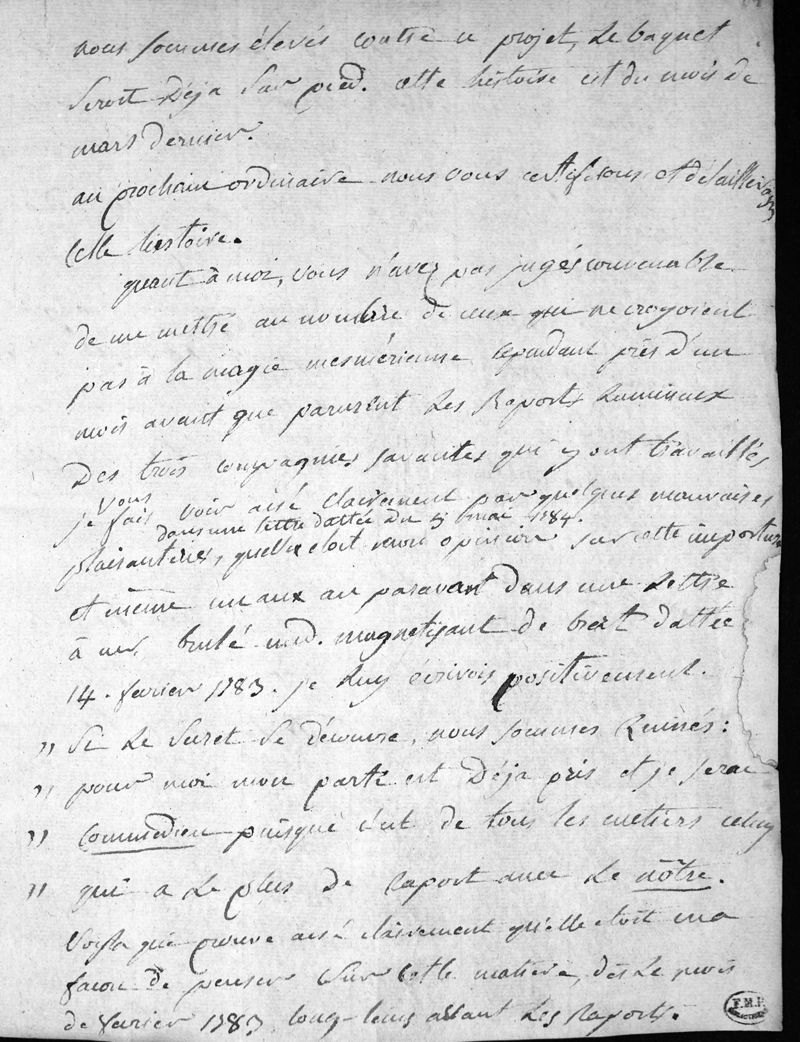 nous sommes élevés contre ce projet, le baquet
seroit déja sur pied. cette histoire est du mois de
mars dernier.
au prochain ordinaire nous vous certifierons et détaillerons
cette histoire.
quant à moi, vous n'avez pas jugés convenable
de me mettre au nombre de ceux qui ne croyoient
pas à la magie mesmérienne cependant près d'un
mois avant que parurent les Raports lumineux
des trois compagnies savantes qui y ont travaillés
je vous fais voir assé clairement par quelques mauvaises
dans une lettre dattée du 5 mai 1784.
plaisanteries, quelle étoit mon opinion sur cette
et même un an au paravant dans une lettre
à mr. brulé med. magnetisant de brest dattée
14. fevrier 1783. je luy écrivois positivement.
" si le secret se découvre, nous sommes Ruinés:
" pour moi mon parti est déja pris et je serai
" commedien puisque c'est de tous les metiers celuy
" qui a le plus de raport avec le nôtre.
voila qui prouve assé clairement qu'elle étoit ma
facon de penser sur cette matiere, dès le mois
de fevrier 1783, long-tems avant les Raports.
F.M.P.